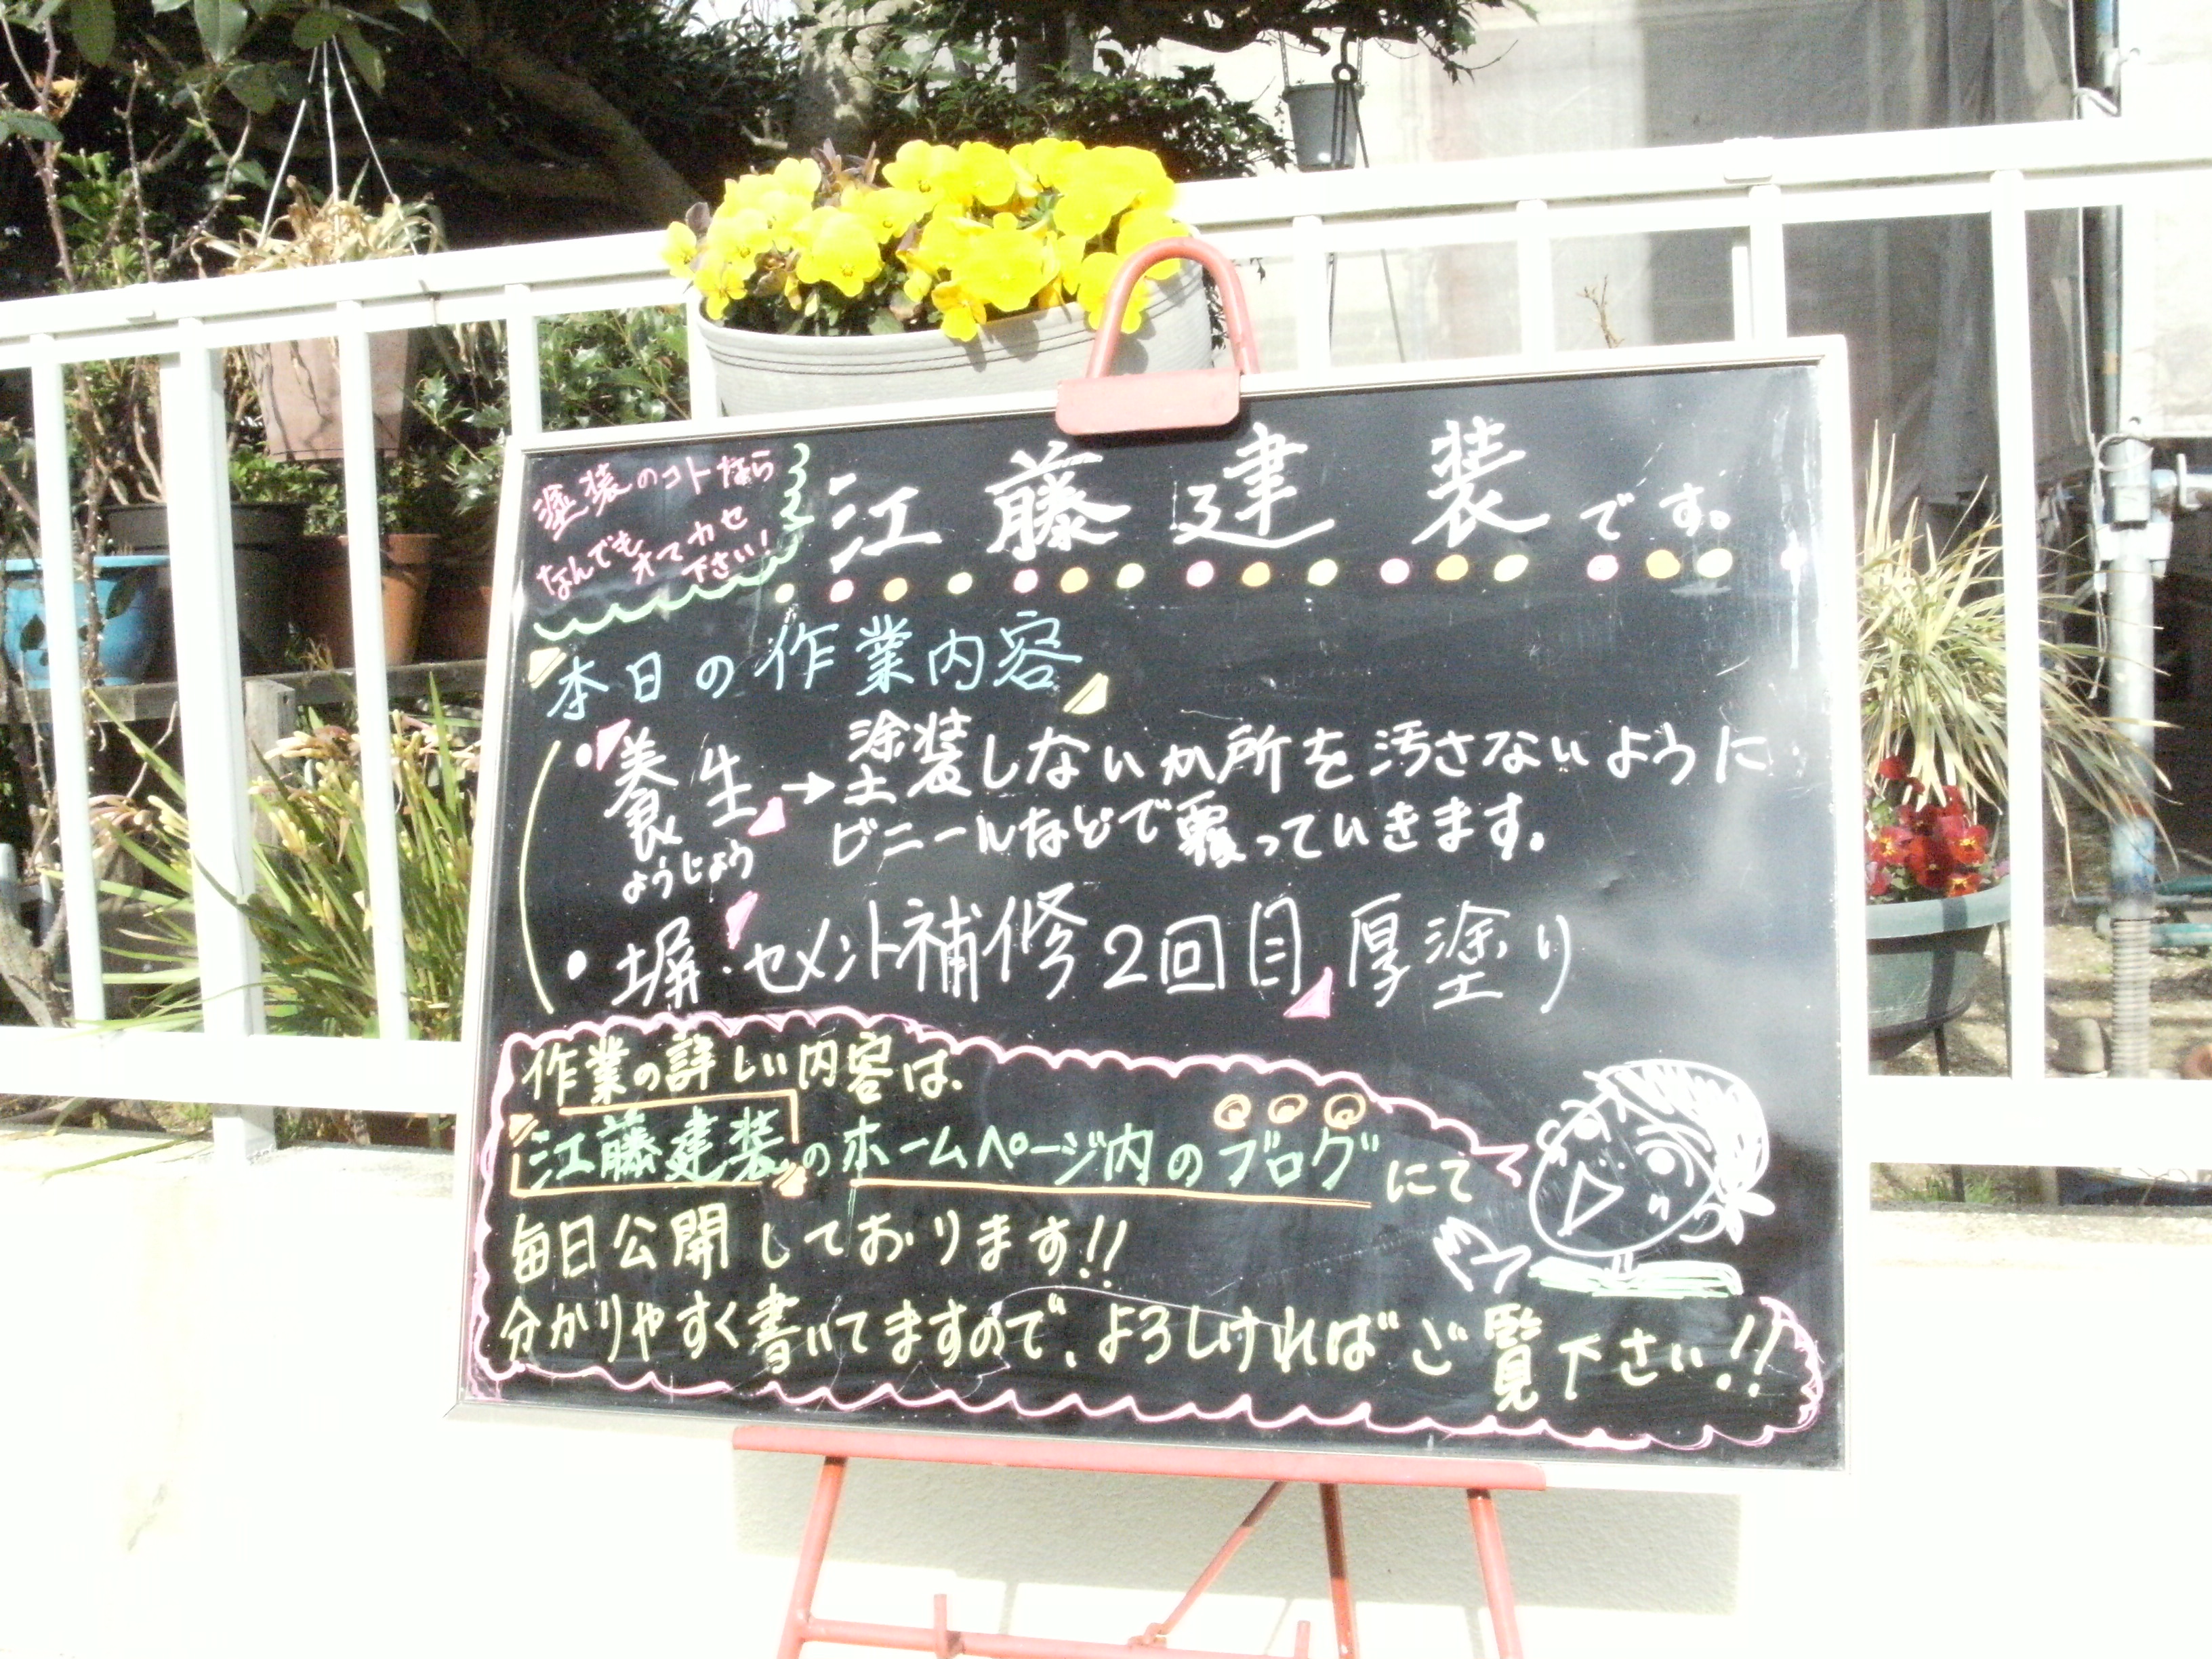 塗装のコトなら
なんでも
オマカセ
下さい!
江藤建装です。
本日の作業内容
・養生→塗装しないか所を汚さないように
ようじょう
ビニールなどで覆っていきます。
・塀・セメント補修2回目厚塗り
作業の詳しい内容は、
江藤建装のホームページ内のブログにて
毎日公開しております!!
分かりやすく書いてますので、よろしければご覧下さい!!